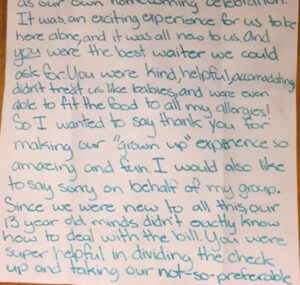 as our own homecoming celebration.
It was, an exciting experience for us to be
here alone, and it was all new to us. And
you were the best waiter we could
ask for. You were kind, helpful, accomadating
didn't treat us like babies, and were even
able to fit the food to all my allergies!
So I wanted to say thank you for
making our "grown up" experience so
amazing and fun. I would also like
to say sorry on behalf of my group.
Since we were new to all this, our
13 year old minds didn't exactly know
how to deal with the bill. You were
super helpful in dividing the check
up and taking our not-so-preferable